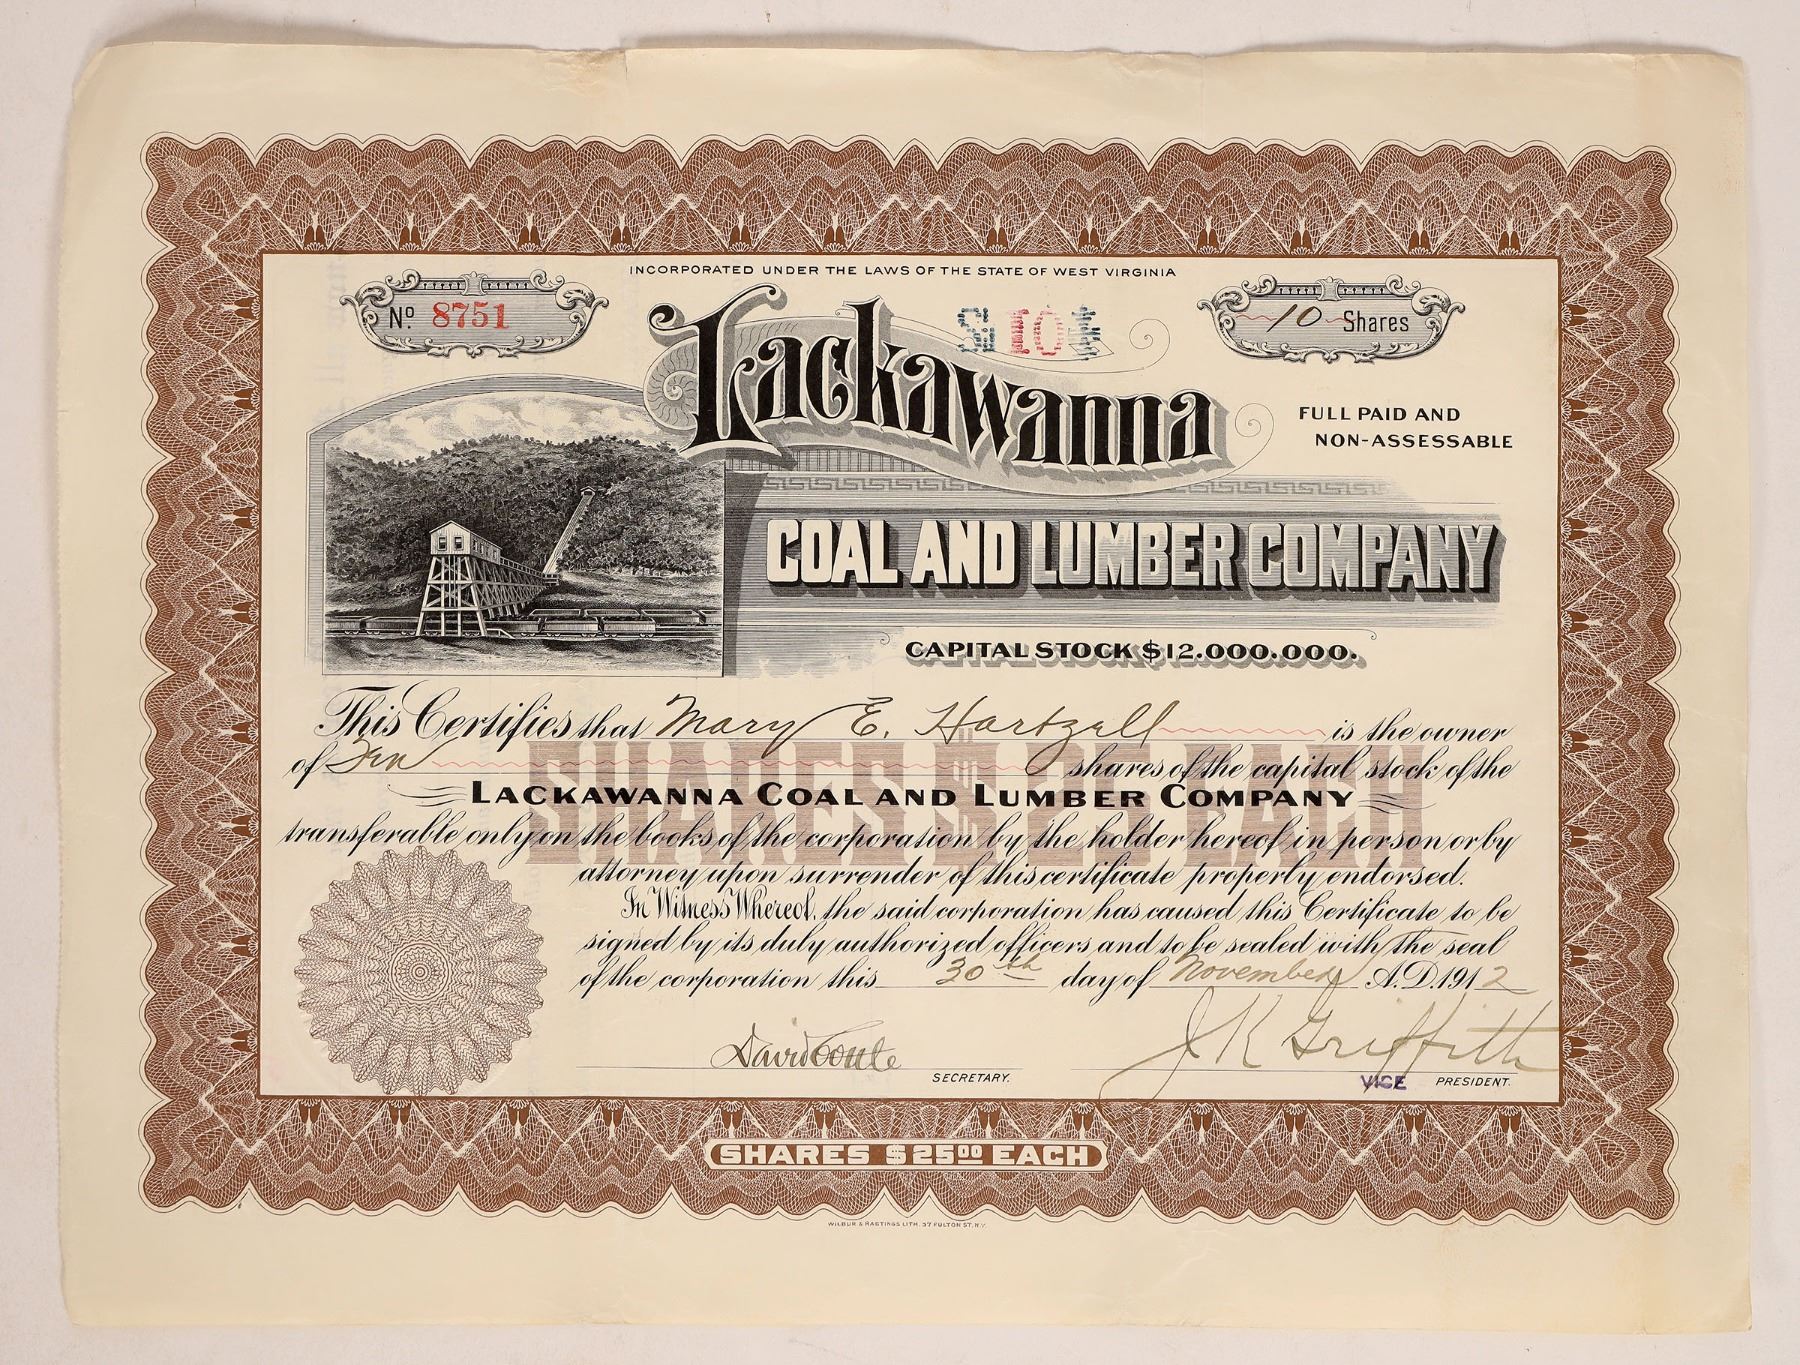 INCORPORATED UNDER THE LAWS OF THE STATE OF WEST VIRGINIA
No. 8751
10 Shares
Lackawanna
FULL PAID AND
NON-ASSESSABLE
COAL AND LUMBER COMPANY
CAPITAL STOCK $12.000.000.
This Certifies that Mary E. Hartzell is the owner
of Ten shares of the capital stock of the
LACKAWANNA COAL AND LUMBER COMPANY
transferable only on the books of the corporation by the holder hereof in person or by
attorney upon surrender of this certificate properly endorsed.
In Witness Whereof, the said corporation has caused this Certificate to be
signed by its duly authorized officers and to be sealed with the seal
of the corporation this 30th day of November A.D. 1912
David J K Griffith
SECRETARY. VICE PRESIDENT.
SHARES $2500 EACH
WILBUR & HASTINGS LITH. 37 FULTON ST. N.Y.